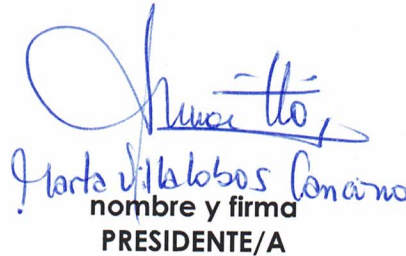 Marta Villalobos Cancino
nombre y firma
PRESIDENTE/A